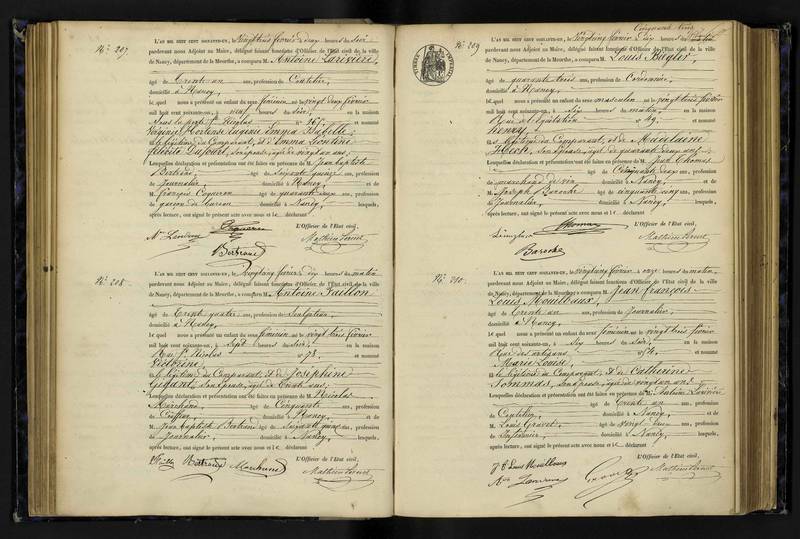 N° 207
L'AN MIL HUIT CENT SOIXANTE-UN, le vingt trois février à deux heures du soir
pardevant nous Adjoint au Maire, délégué faisant fonctions d'Officier de l'État civil de la ville
de Nancy, département de la Meurthe, a comparu M. Antoine Larivière,
âgé de Trente un ans, profession de Coutelier,
domicilié à Nancy,
lequel nous a présenté un enfant du sexe féminin né le vingt deux février
mil huit cent soixante-un, à neuf heures du soir, en la maison
N° 167, et nommé
Hortense Eugénie Emma
et légitime du Comparant, et d'Emma
Dupont, son épouse, âgée de vingt six ans.
Lesquelles déclaration et présentation ont été faites en présence de M. Jean baptiste
Bertrand, âgé de Soixante quinze ans, profession
de Journalier, domicilié à Nancy, et de
M. François âgé de quarante deux ans, profession
de garçon de bureau domicilié à Nancy, lesquels,
après lecture, ont signé le présent acte avec nous et le déclarant
L'Officier de l'État civil,
Bertrand
N° 208
L'AN MIL HUIT CENT SOIXANTE-UN, le vingt cinq février à dix heures du matin
pardevant nous Adjoint au Maire, délégué faisant fonctions d'Officier de l'État civil de la ville
de Nancy, département de la Meurthe, a comparu M. Antoine Vaillon
âgé de Trente quatre ans, profession de Sculpteur,
domicilié à Nancy,
lequel nous a présenté un enfant du sexe féminin né le vingt trois février
mil huit cent soixante-un, à Sept heures du soir, en la maison
Rue St Nicolas N° 78, et nommé
Victorine,
et légitime du Comparant, et de Joséphine
son épouse, âgée de Trente ans.
Lesquelles déclaration et présentation ont été faites en présence de M. Nicolas
Marchand, âgé de Cinquante ans, profession
de Coiffeur, domicilié à Nancy, et de
M. Jean baptiste Bertrand âgé de Soixante quinze ans, profession
de Journalier, domicilié à Nancy, lesquels,
après lecture, ont signé le présent acte avec nous et le déclarant
L'Officier de l'État civil,
Bertrand Marchand
N° 209
L'AN MIL HUIT CENT SOIXANTE-UN, le vingt cinq février à dix heures du matin
pardevant nous Adjoint au Maire, délégué faisant fonctions d'Officier de l'État civil de la ville
de Nancy, département de la Meurthe, a comparu M. Louis
âgé de quarante trois ans, profession de Cordonnier,
domicilié à Nancy,
lequel nous a présenté un enfant du sexe masculin né le vingt trois février
mil huit cent soixante-un, à Six heures du matin, en la maison
Rue de l'équitation N° 49, et nommé
Henry,
et légitime du Comparant, et de Madelaine
son épouse, âgée de quarante deux ans.
Lesquelles déclaration et présentation ont été faites en présence de M. Jean Thomas
âgé de Cinquante deux ans, profession
de marchand de vin domicilié à Nancy, et de
M. Joseph Baroche âgé de cinquante cinq ans, profession
de Journalier, domicilié à Nancy, lesquels,
après lecture, ont signé le présent acte avec nous et le déclarant
L'Officier de l'État civil,
Thomas
Baroche
N° 210
L'AN MIL HUIT CENT SOIXANTE-UN, le vingt cinq février à onze heures du matin
pardevant nous Adjoint au Maire, délégué faisant fonctions d'Officier de l'État civil de la ville
de Nancy, département de la Meurthe, a comparu M. Jean François
Louis Mouilboux,
âgé de Trente un ans, profession de Journalier,
domicilié à Nancy,
lequel nous a présenté un enfant du sexe féminin né le vingt trois février
mil huit cent soixante-un, à Six heures du soir, en la maison
Rue des artisans N° 54, et nommé
Marie Louise,
et légitime du Comparant, et de Catherine
Pommas, son épouse, âgée de vingt six ans.
Lesquelles déclaration et présentation ont été faites en présence de M. Antoine Larivière
âgé de Trente un ans, profession
de Coutelier, domicilié à Nancy, et de
M. Louis Gravel, âgé de vingt deux ans, profession
de Infirmier, domicilié à Nancy, lesquels,
après lecture, ont signé le présent acte avec nous et le déclarant
L'Officier de l'État civil,